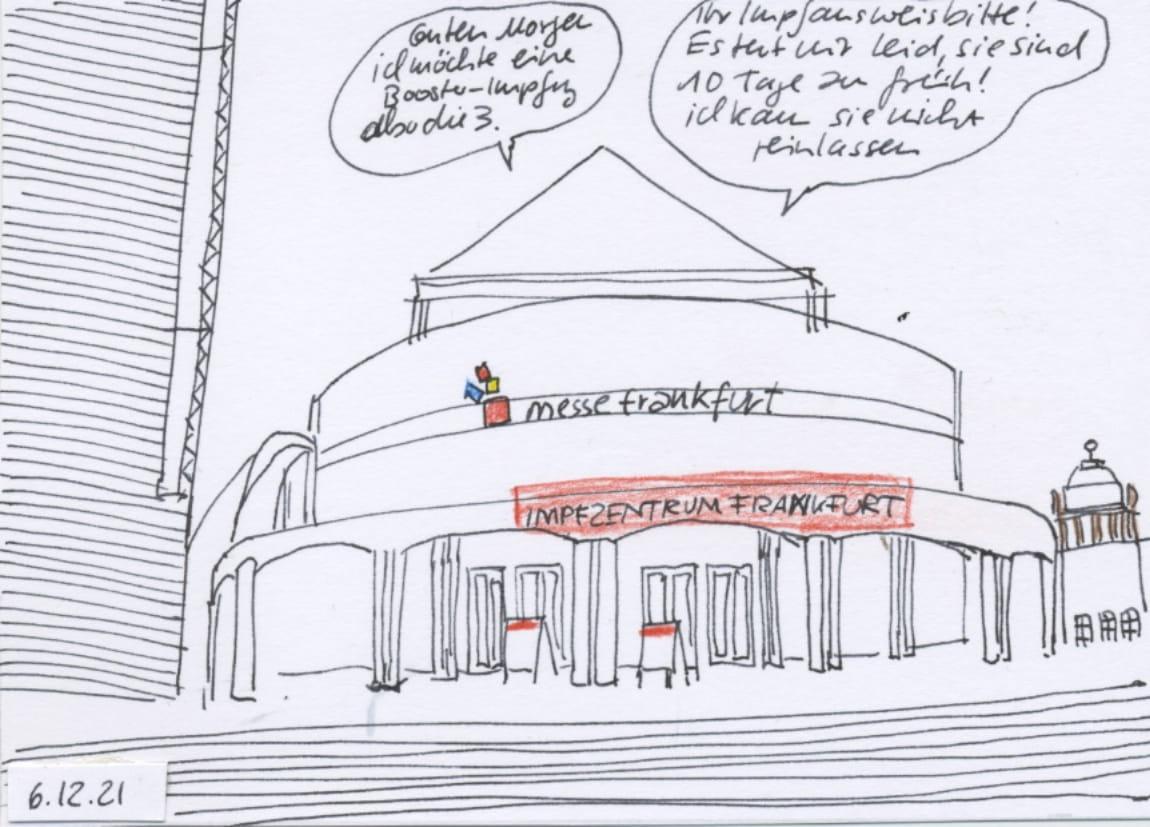 Guten Morgen
ich möchte eine
Booster-Impfg
also die 3.
Ihr Impfausweis bitte!
Es tut mir leid, sie sind
10 Tage zu früh!
ich kann sie nicht
reinlassen
messe frankfurt
IMPFZENTRUM FRANKFURT
6.12.21